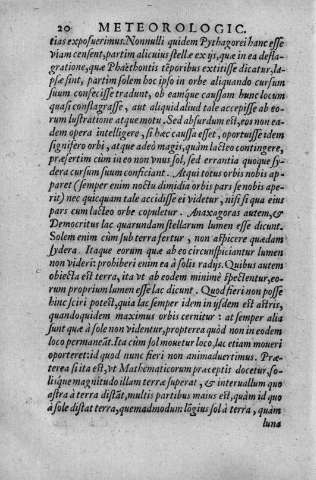 20 METEOROLOGIC.
tias exposuerimus. Nonnulli quidem Pythagorei hanc esse
viam censent, partim alicuius stellæ ex ijs, quæ in ea defla-
gratione, quæ Phaëthontis tẽporibus extitisse dicatur, la-
psæ sint, partim solem hoc ipso in orbe aliquando cursum
suum confecisse tradunt, ob eamque caussam hunc locum
quasi conflagrasse, aut aliquid aliud tale accepisse ab eo-
rum lustratione atque motu. Sed absurdum est, eos non ea-
dem opera intelligere, si hæc caussa esset, oportuisse idem
signifero orbi, atque adeò magis, quàm lacteo contingere,
præsertim cùm in eo non vnus sol, sed errantia quoque sy-
dera cursum suum conficiant. Atqui totus orbis nobis ap-
paret (semper enim noctu dimidia orbis pars se nobis ape-
rit) nec quicquam tale accidisse ei videtur, nisi si qua eius
pars cum lacteo orbe copuletur. Anaxagoras autem, &
Democritus lac quarundam stellarum lumen esse dicunt.
Solem enim cùm sub terra fertur, non aspicere quædam
sydera. Itaque eorum quæ ab eo circunspiciantur lumen
non videri: prohiberi enim ea à solis radijs. Quibus autem
obiecta est terra, ita vt ab eodem minimè spectentur, eo-
rum proprium lumen esse lac dicunt. Quod fieri non posse
hinc sciri potest, quia lac semper idem in ijsdem est astris,
quandoquidem maximus orbis cernitur: at semper alia
sunt quæ à sole non videntur, propterea quòd non in eodem
loco permaneãt. Ita cùm sol mouetur loco, lac etiam moueri
oporteret: id quod nunc fieri non animaduertimus. Præ-
terea si ita est, vt Mathematicorum præceptis docetur, so-
lisque magnitudo illam terræ superat, & interuallum quo
astra à terra distãt, multis partibus maius est, quàm id quo
à sole distat terra, quemadmodum lõgius sol à terra, quàm
luna